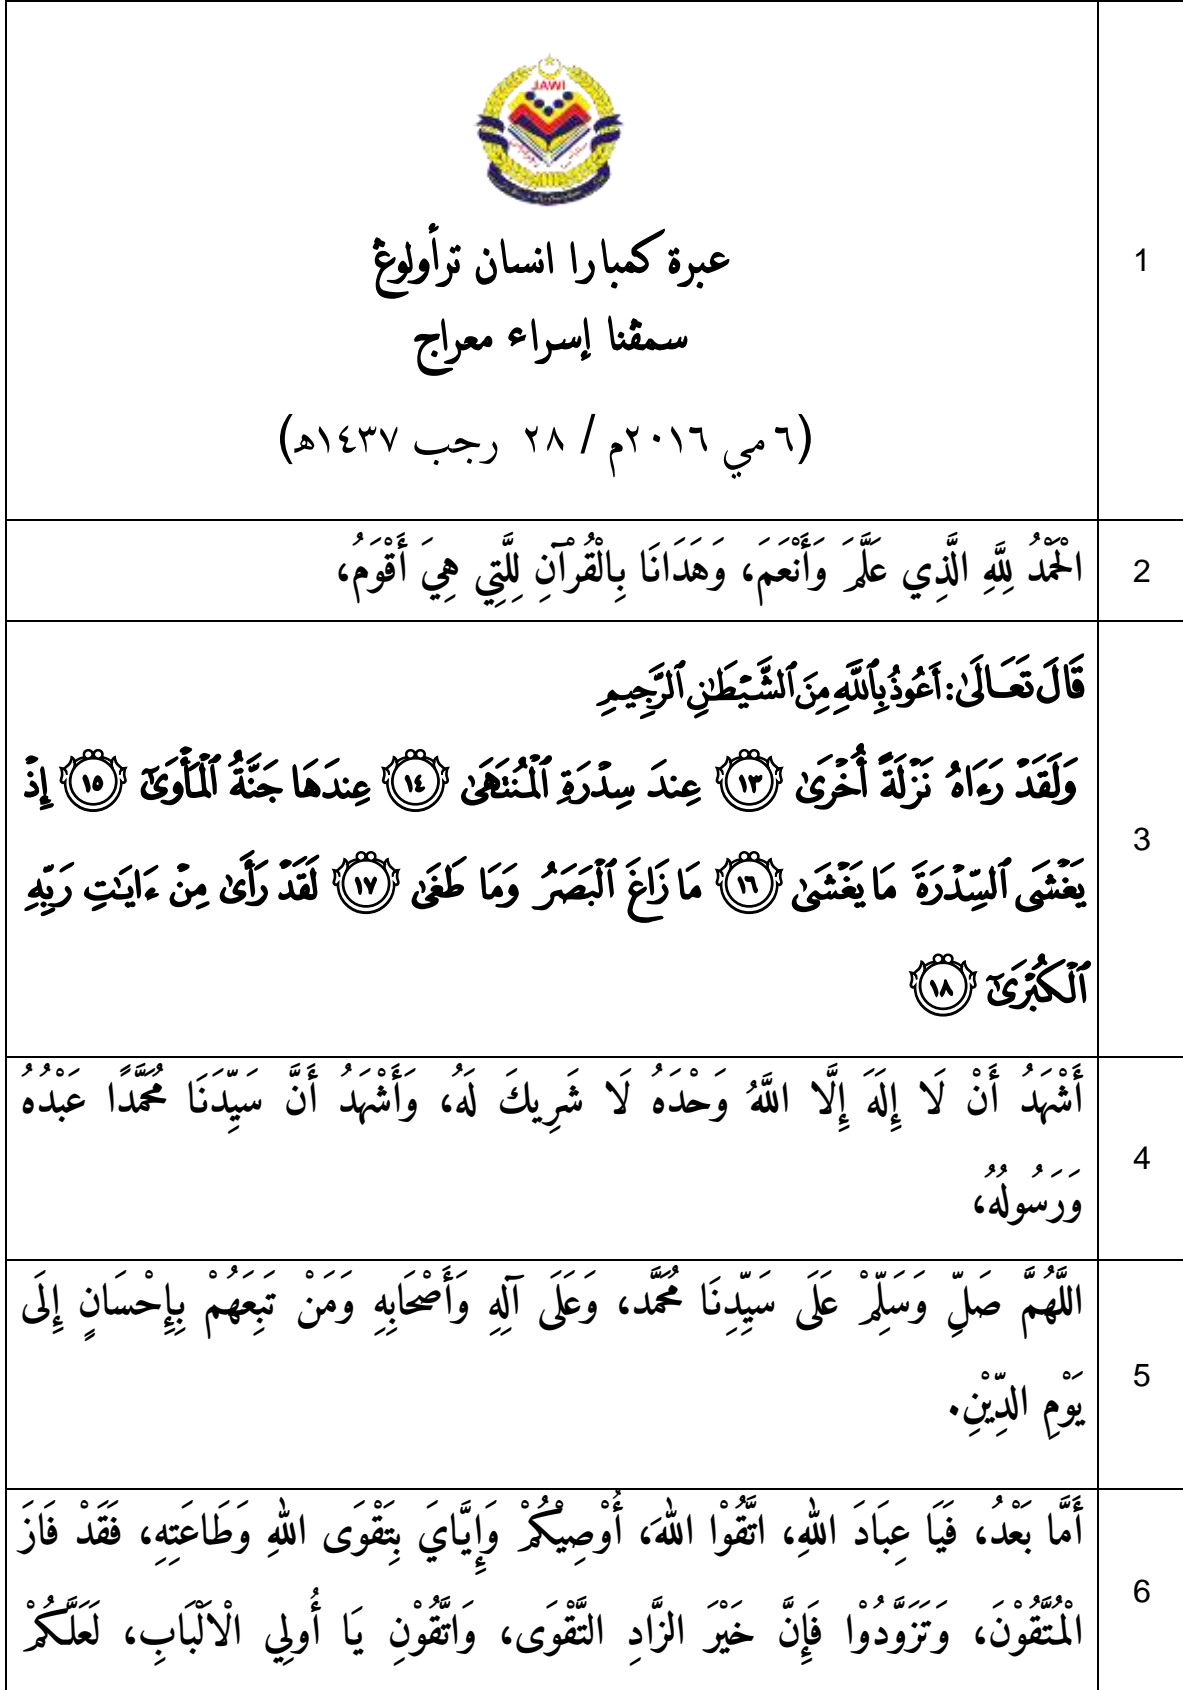 JAWI
عبرة كمبارا انسان ترأولوڠ
سمڤنا إسراء معراج
(٦ مي ٢٠١٦م / ٢٨ رجب ١٤٣٧هـ)
1
الْحَمْدُ لِلَّهِ الَّذِي عَلَّمَ وَأَنْعَمَ، وَهَدَانَا بِالْقُرْآنِ لِلَّتِي هِيَ أَقْوَمُ،
2
قَالَ تَعَالَىٰ: أَعُوذُ بِٱللَّهِ مِنَ ٱلشَّيْطَٰنِ ٱلرَّجِيمِ
وَلَقَدْ رَءَاهُ نَزْلَةً أُخْرَىٰ ١٣ عِندَ سِدْرَةِ ٱلْمُنتَهَىٰ ١٤ عِندَهَا جَنَّةُ ٱلْمَأْوَىٰٓ ١٥ إِذْ
يَغْشَى ٱلسِّدْرَةَ مَا يَغْشَىٰ ١٦ مَا زَاغَ ٱلْبَصَرُ وَمَا طَغَىٰ ١٧ لَقَدْ رَأَىٰ مِنْ ءَايَٰتِ رَبِّهِ
ٱلْكُبْرَىٰٓ ١٨
3
أَشْهَدُ أَنْ لَا إِلَهَ إِلَّا اللَّهُ وَحْدَهُ لَا شَرِيكَ لَهُ، وَأَشْهَدُ أَنَّ سَيِّدَنَا مُحَمَّدًا عَبْدُهُ
وَرَسُولُهُ،
4
اللَّهُمَّ صَلِّ وَسَلِّمْ عَلَى سَيِّدِنَا مُحَمَّد، وَعَلَى آلِهِ وَأَصْحَابِهِ وَمَنْ تَبِعَهُمْ بِإِحْسَانٍ إِلَى
يَوْمِ الدِّيْنِ.
5
أَمَّا بَعْدُ، فَيَا عِبَادَ اللهِ، اتَّقُوْا اللهَ، أُوْصِيْكُمْ وَإِيَّايَ بِتَقْوَى اللهِ وَطَاعَتِهِ، فَقَدْ فَازَ
الْمُتَّقُوْنَ، وَتَزَوَّدُوْا فَإِنَّ خَيْرَ الزَّادِ التَّقْوَى، وَاتَّقُوْنِ يَا أُولِي الْاَلْبَابِ، لَعَلَّكُمْ
6